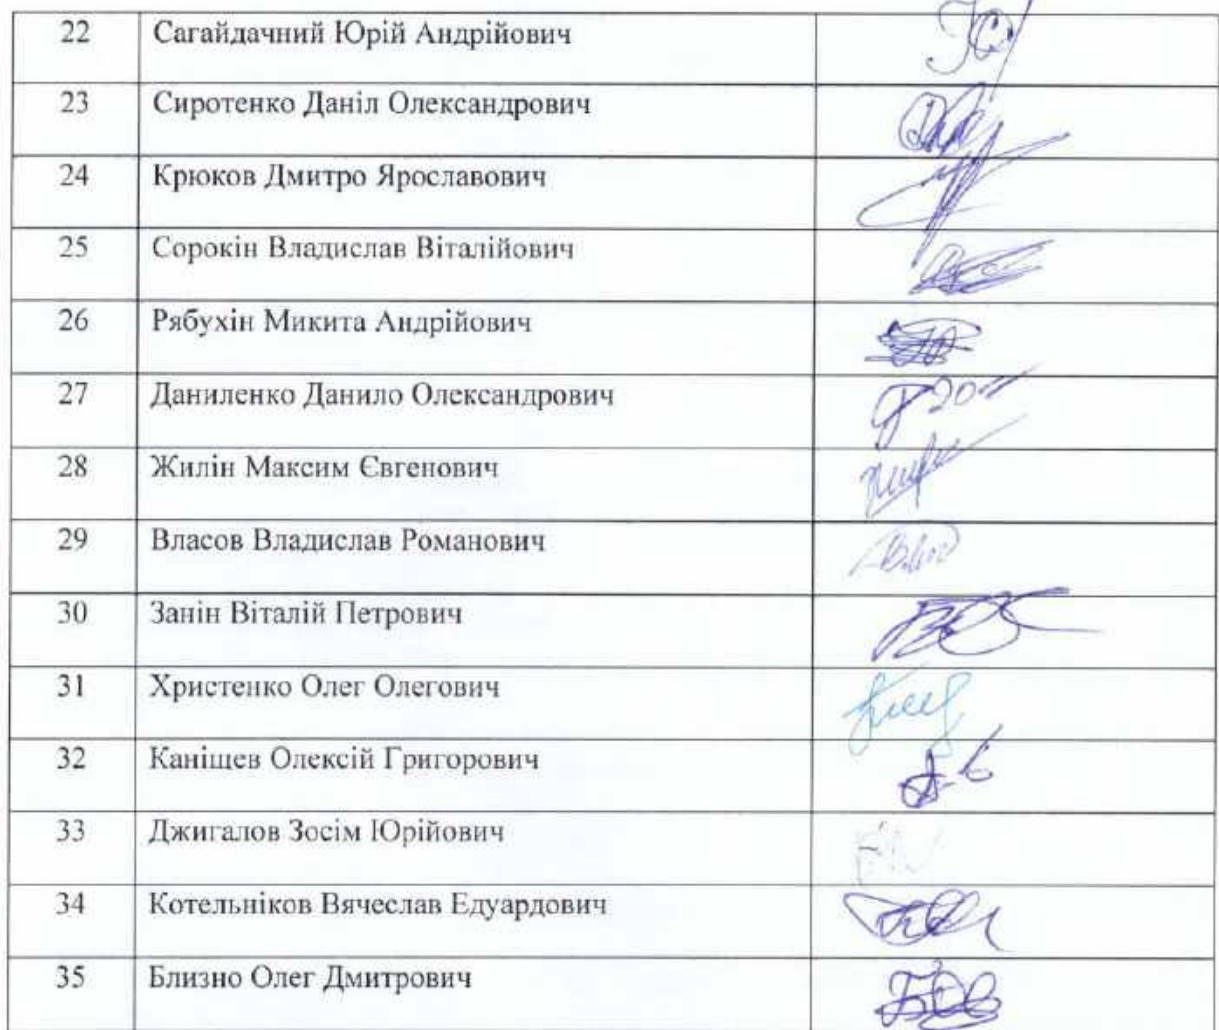 22 Сагайдачний Юрій Андрійович
23 Сиротенко Даніл Олександрович
24 Крюков Дмитро Ярославович
25 Сорокін Владислав Віталійович
26 Рябухін Микита Андрійович
27 Даниленко Данило Олександрович
28 Жилін Максим Євгенович
29 Власов Владислав Романович
30 Занін Віталій Петрович
31 Христенко Олег Олегович
32 Каніщев Олексій Григорович
33 Джигалов Зосім Юрійович
34 Котельніков Вячеслав Едуардович
35 Близно Олег Дмитрович